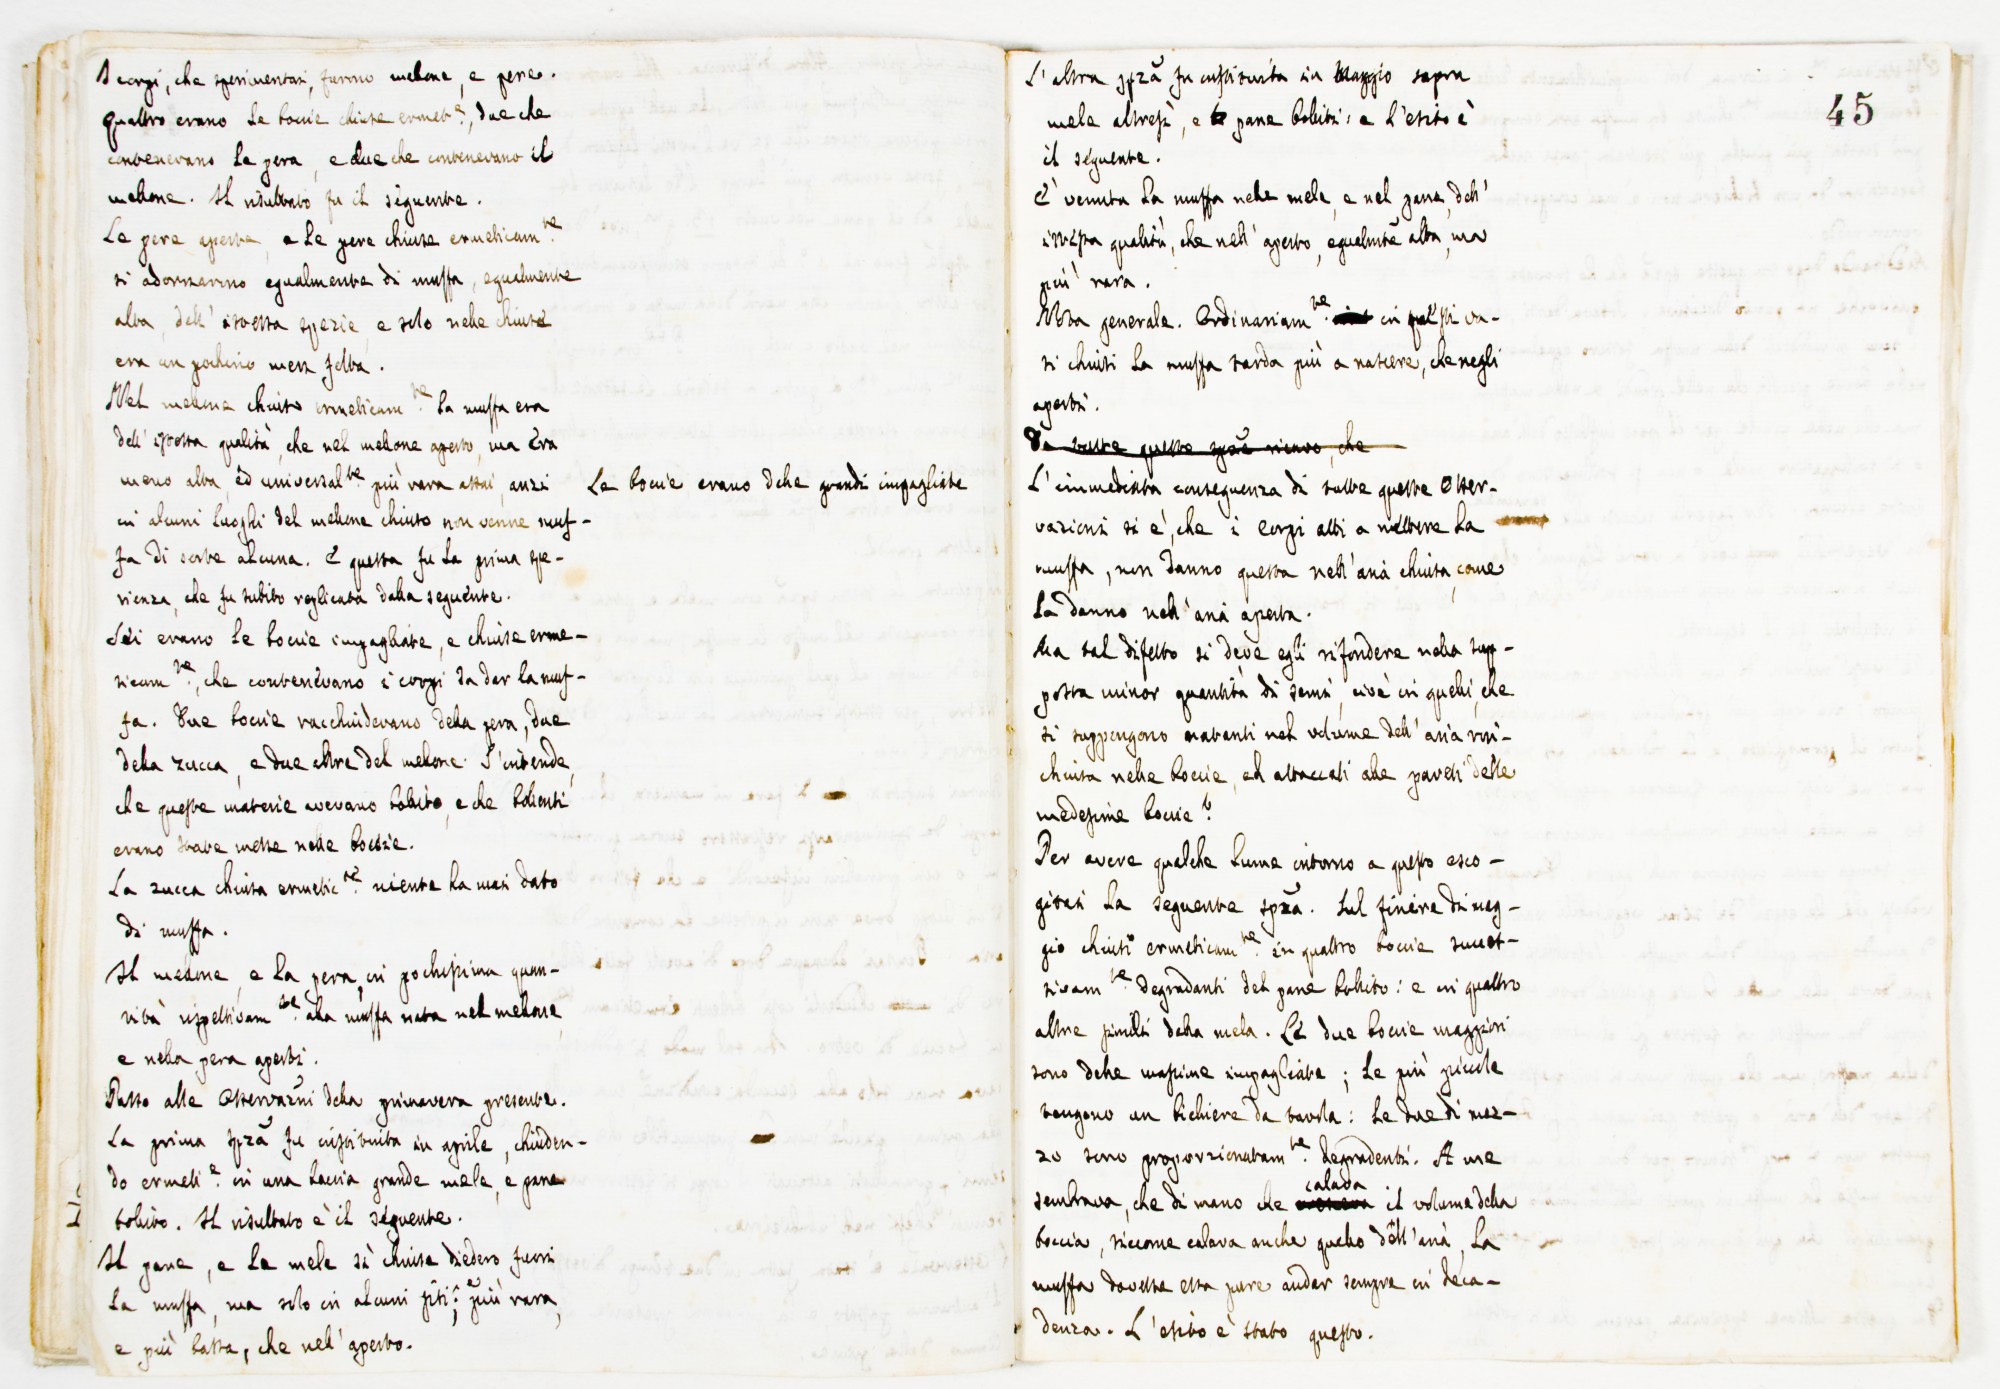 I corpi, che sperimentai, furono melone, e pere.
Quattro erano le boccie chiuse ermet.e, due che
contenevano la pera, e due che contenevano il
melone. Il risultato fu il seguente.
Le pere aperte, e le pere chiuse ermeticam.te
si adornarono egualmente di muffa, egualmente
alta, dell' istessa spezie, e solo nelle chiuse
era un pochino men folta.
Nel melone chiuso ermeticam.te la muffa era
dell' istessa qualità, che nel melone aperto, ma era
meno alta, ed universal.te più rara assai, anzi
in alcuni luoghi del melone chiuso non venne muf-
fa di sorte alcuna. E questa fu la prima spe-
rienza, che fu subito replicata dalla seguente.
Le boccie erano delle grandi impagliate
Sei erano le boccie impagliate, e chiuse erme-
ticam.te, che contenevano i corpi da dar la muf-
fa. Due boccie racchiudevano della pera, due
della zucca, e due altre del melone. S'intende,
che queste materie avevano bollito, e che bollenti
erano state messe nelle boccie.
La zucca chiusa ermetic.te niente ha mai dato
di muffa.
Il melone, e la pera, in pochissima quan-
tità rispettivam.te alla muffa nata nel melone,
e nella pera aperti.
Passo alle osservazni della primavera presente.
La prima spza fu instituita in aprile, chiuden-
do ermeti.e in una boccia grande mele, e pane
bollito. Il risultato è il seguente.
Il pane, e le mele sì chiuse diedero fuori
la muffa, ma solo in alcuni siti; e più rara,
e più bassa, che nell' aperto.
45
L'altra spza fu instituita in Maggio sopra
mele altresì, e pane bolliti: e l'esito è
il seguente.
È venuta la muffa nelle mele, e nel pane, dell'
istessa qualità, che nell' aperto, egualmte alta, ma
più rara.
Nota generale. Ordinariam.te in questi va-
si chiusi la muffa tarda più a nascere, che negli
aperti.
Da tutte queste spze ricavo, che
L'immediata conseguenza di tutte queste osser-
vazioni si è, che i corpi atti a mettere la
muffa, non danno questa nell'aria chiusa, come
la danno nell'aria aperta.
Ma tal difetto si deve egli rifondere nella sup-
posta minor quantità di semi, cioè in quelli, che
si suppongono natanti nel volume dell' aria rin-
chiusa nelle boccie, ed attaccati alle pareti delle
medesime boccie?
Per avere qualche lume intorno a questo esco-
gitai la seguente spza. Sul finire di mag-
gio chiusi ermeticam.te in quattro boccie succes-
sivam.te degradanti del pane bollito: e in quattro
altre simili della mela. Le due boccie maggiori
sono delle massime impagliate; le più piccole
tengono un bichiere da tavola: le due di mez-
zo sono proporzionatam.te degradenti. A me
sembrava, che di mano che calada il volume della
boccia, siccome calava anche quello dell'aria, la
muffa dovesse essa pure andar sempre in deca-
denza. L'esito è stato questo.